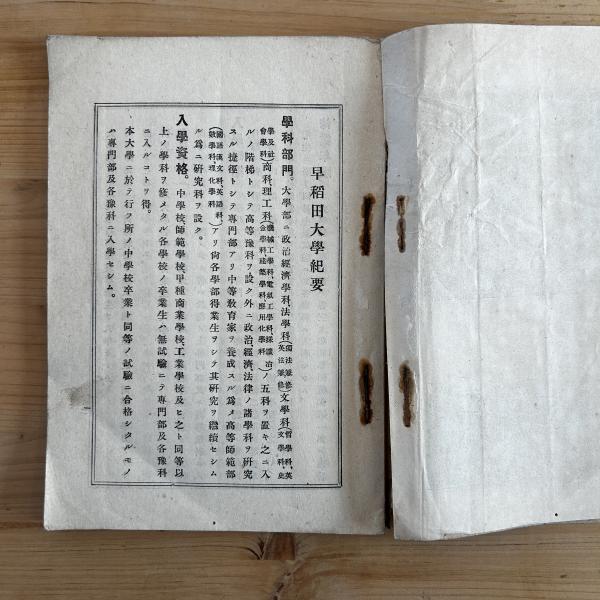 早稻田大學紀要
學科部門。大學部ニ政治經濟學科、法學科(獨法兼修英法兼修)文學科(哲學科、英文學科、史
學及社會學科)商科、理工科(機械工學科、電氣工學科、採鑛冶金學科、建築學科應用化學科)ノ五科ヲ置キ之ニ入
ルノ階梯トシテ高等豫科ヲ設ク外ニ政治、經濟、法律ノ諸學科ヲ硏究
スル捷徑トシテ專門部アリ中等敎育家ヲ養成スル爲メ高等師範部
(國語漢文科、英語科數學科理化學科)アリ尙各學部得業生ヲシテ其硏究ヲ繼續セシム
ル爲ニ硏究科ヲ設ク。
入學資格。中學校、師範學校、甲種商業學校、工業學校及ヒ之ト同等以
上ノ學科ヲ修メタル各學校ノ卒業生ハ無試驗ニテ專門部及各豫科
ニ入ルコトヲ得。
本大學ニ於テ行フ所ノ中學校卒業ト同等ノ試驗ニ合格シタルモノ
ハ專門部及各豫科ニ入學セシム。